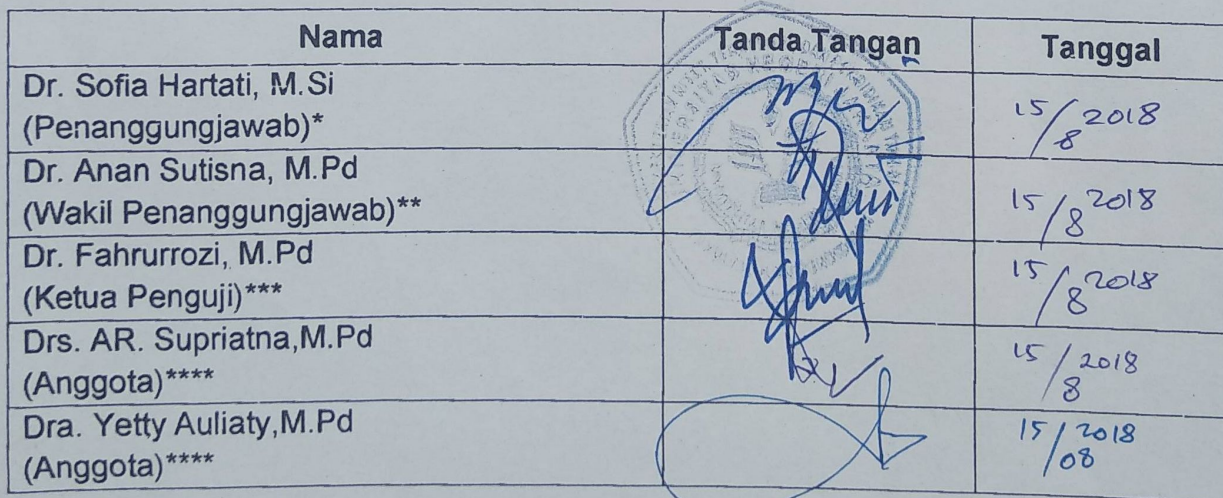 Nama Tanda Tangan Tanggal
Dr. Sofia Hartati, M.Si
(Penanggungjawab)*
15/8 2018
Dr. Anan Sutisna, M.Pd
(Wakil Penanggungjawab)**
15/8 2018
Dr. Fahrurrozi, M.Pd
(Ketua Penguji)***
15/8 2018
Drs. AR. Supriatna,M.Pd
(Anggota)****
15/8 2018
Dra. Yetty Auliaty,M.Pd
(Anggota)****
15/08 2018